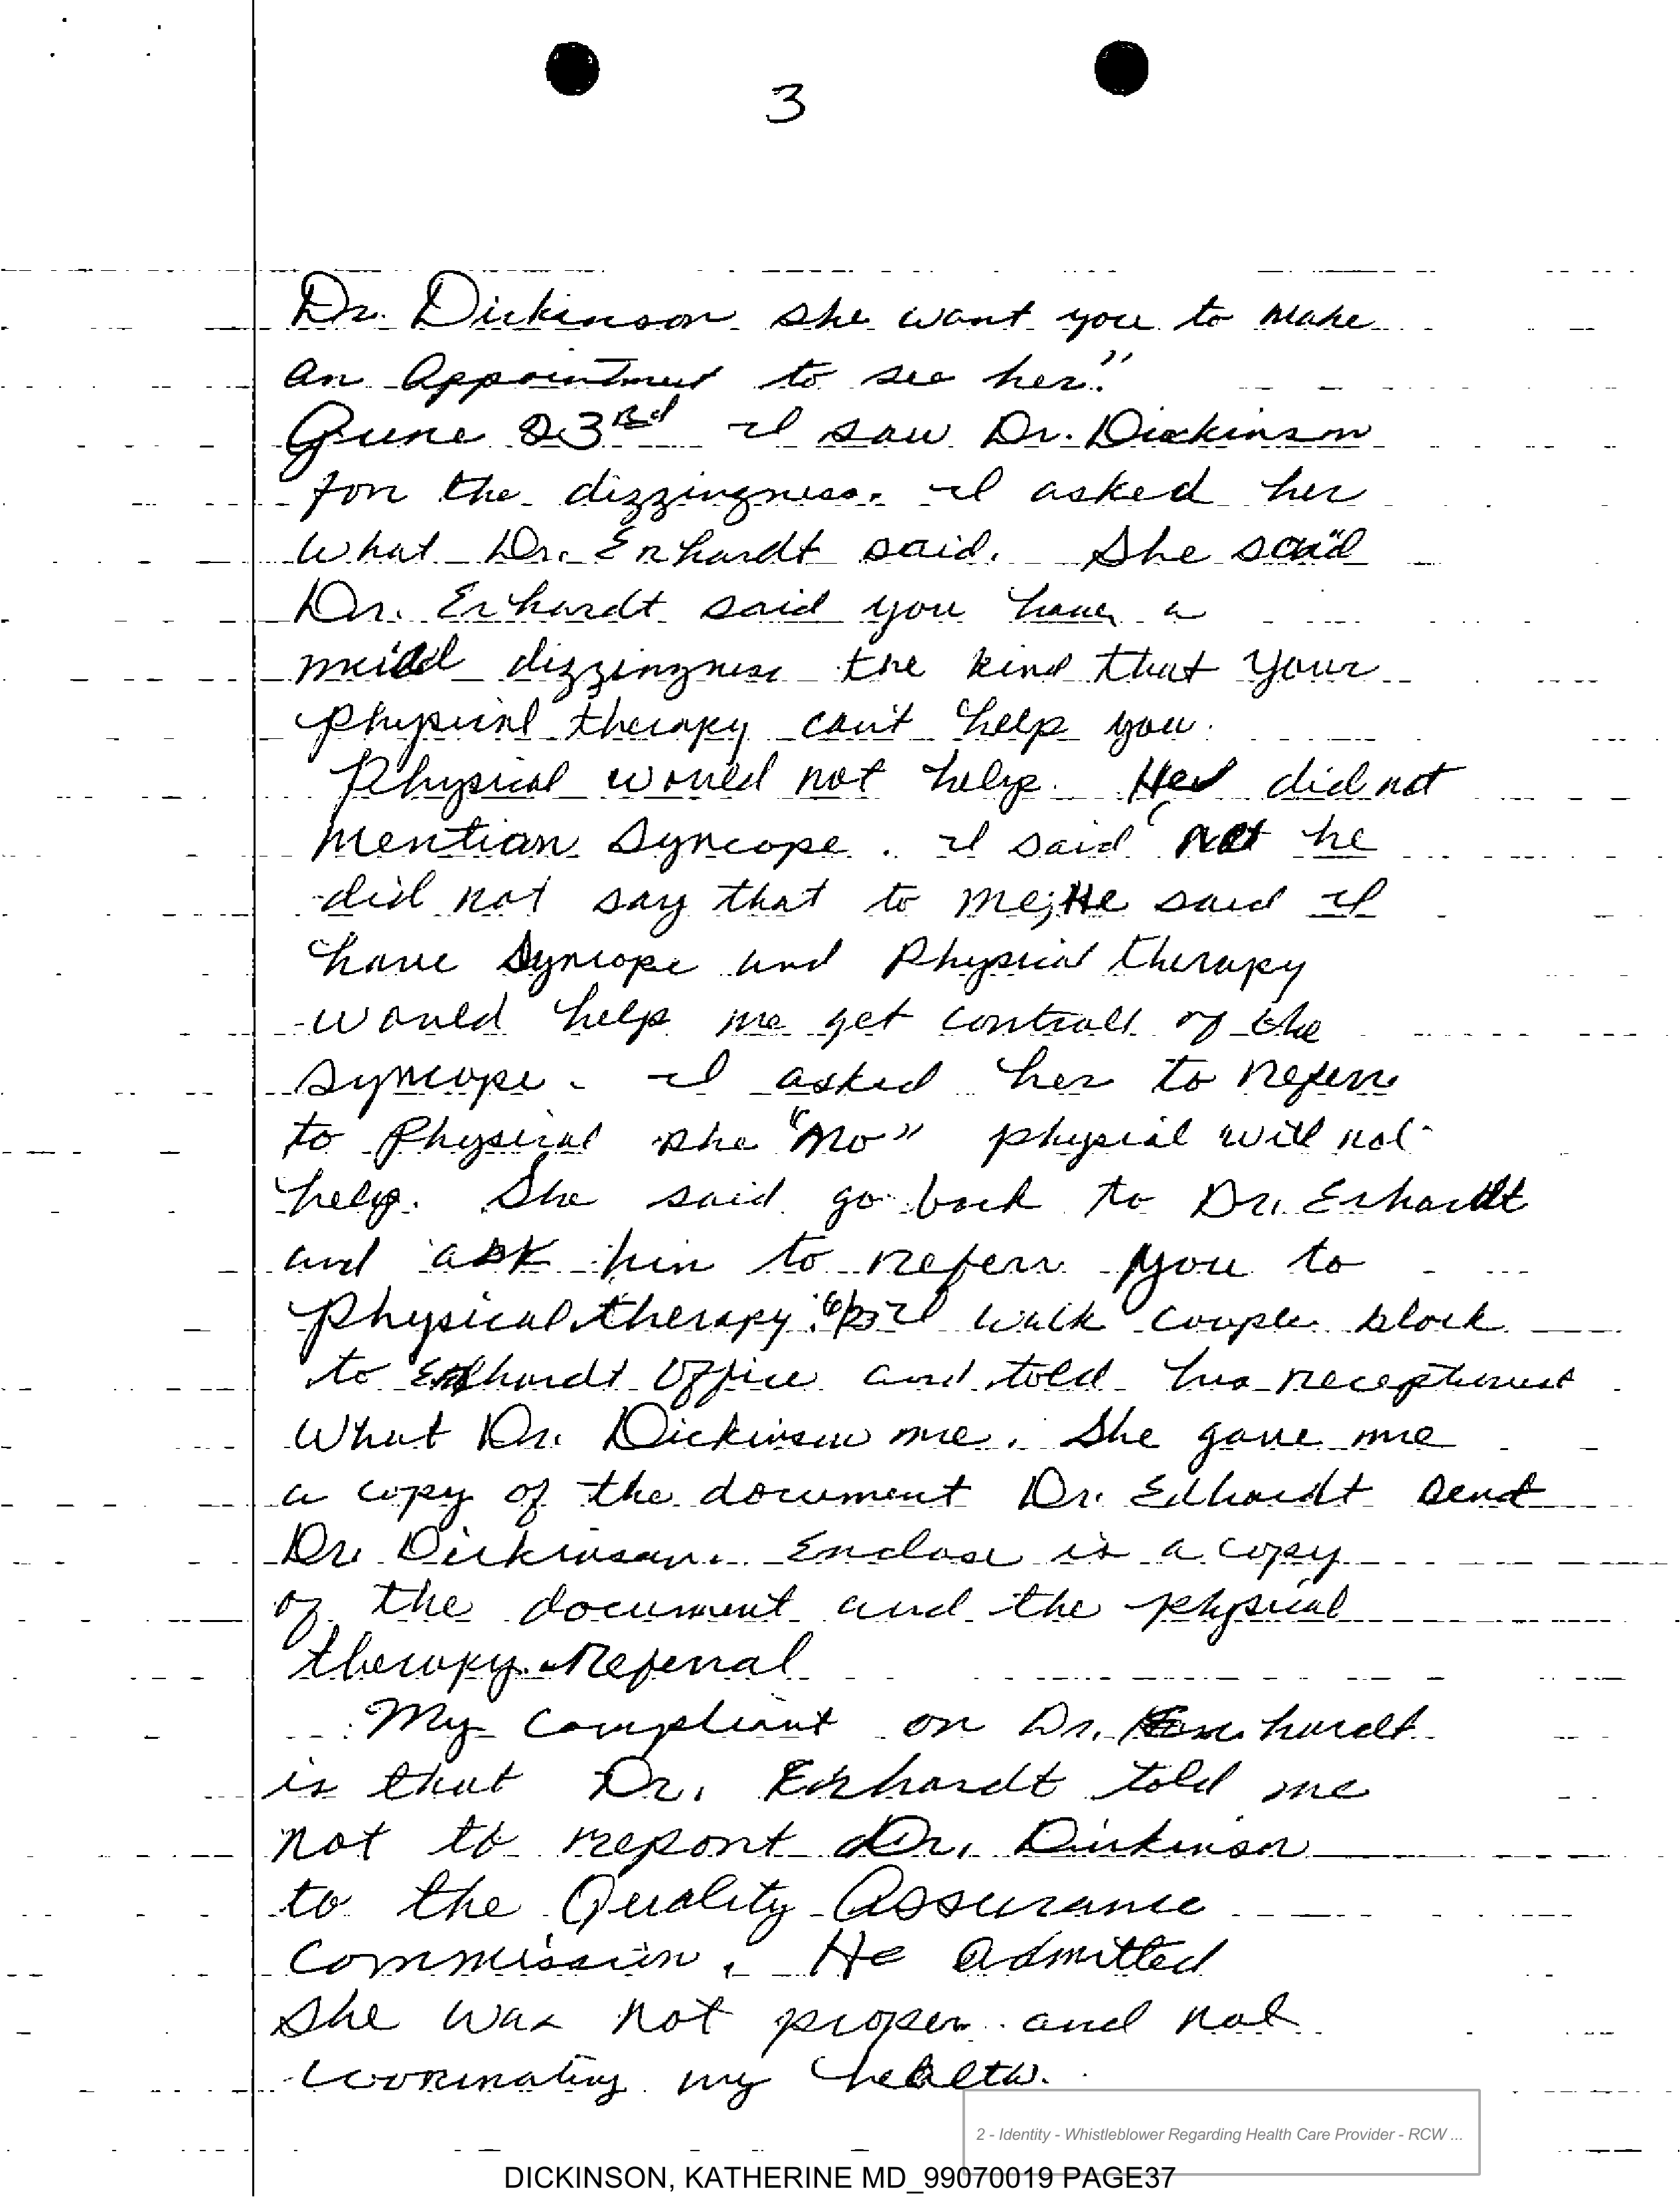 3
Dr. Dickinson she want you to make
an Appointment to see her."
June 23rd I saw Dr. Dickinson
for the dizzingness. I asked her
what Dr. Erhardt said. She said
Dr. Erhardt said you have a
mild dizzingness the kind that your
physical therapy can't help you.
Physical would not help. He did not
mention Syncope. I said not he
did not say that to me; He said I
have Syncope and Physical therapy
would help me get controll of the
syncope. I asked her to referr
to Physical she "No" physical will not
help. She said go back to Dr. Erhardt
and ask him to referr you to
Physical therapy. I walk couple block
to Erhardt Office and told his receptionist
What Dr. Dickinson me. She gave me
a copy of the document Dr. Edhardt Send
Dr. Dickinson. Enclose is a copy
of the document and the physical
therapy Referral
My Compliant on Dr. hardt
is that Dr. Erhardt told me
not to report Dr. Dickinson
to the Quality Assurance
Commission. He admitted
She was not proper and not
coorinating my health.
2 - Identity - Whistleblower Regarding Health Care Provider - RCW ...
DICKINSON, KATHERINE MD_99070019 PAGE37